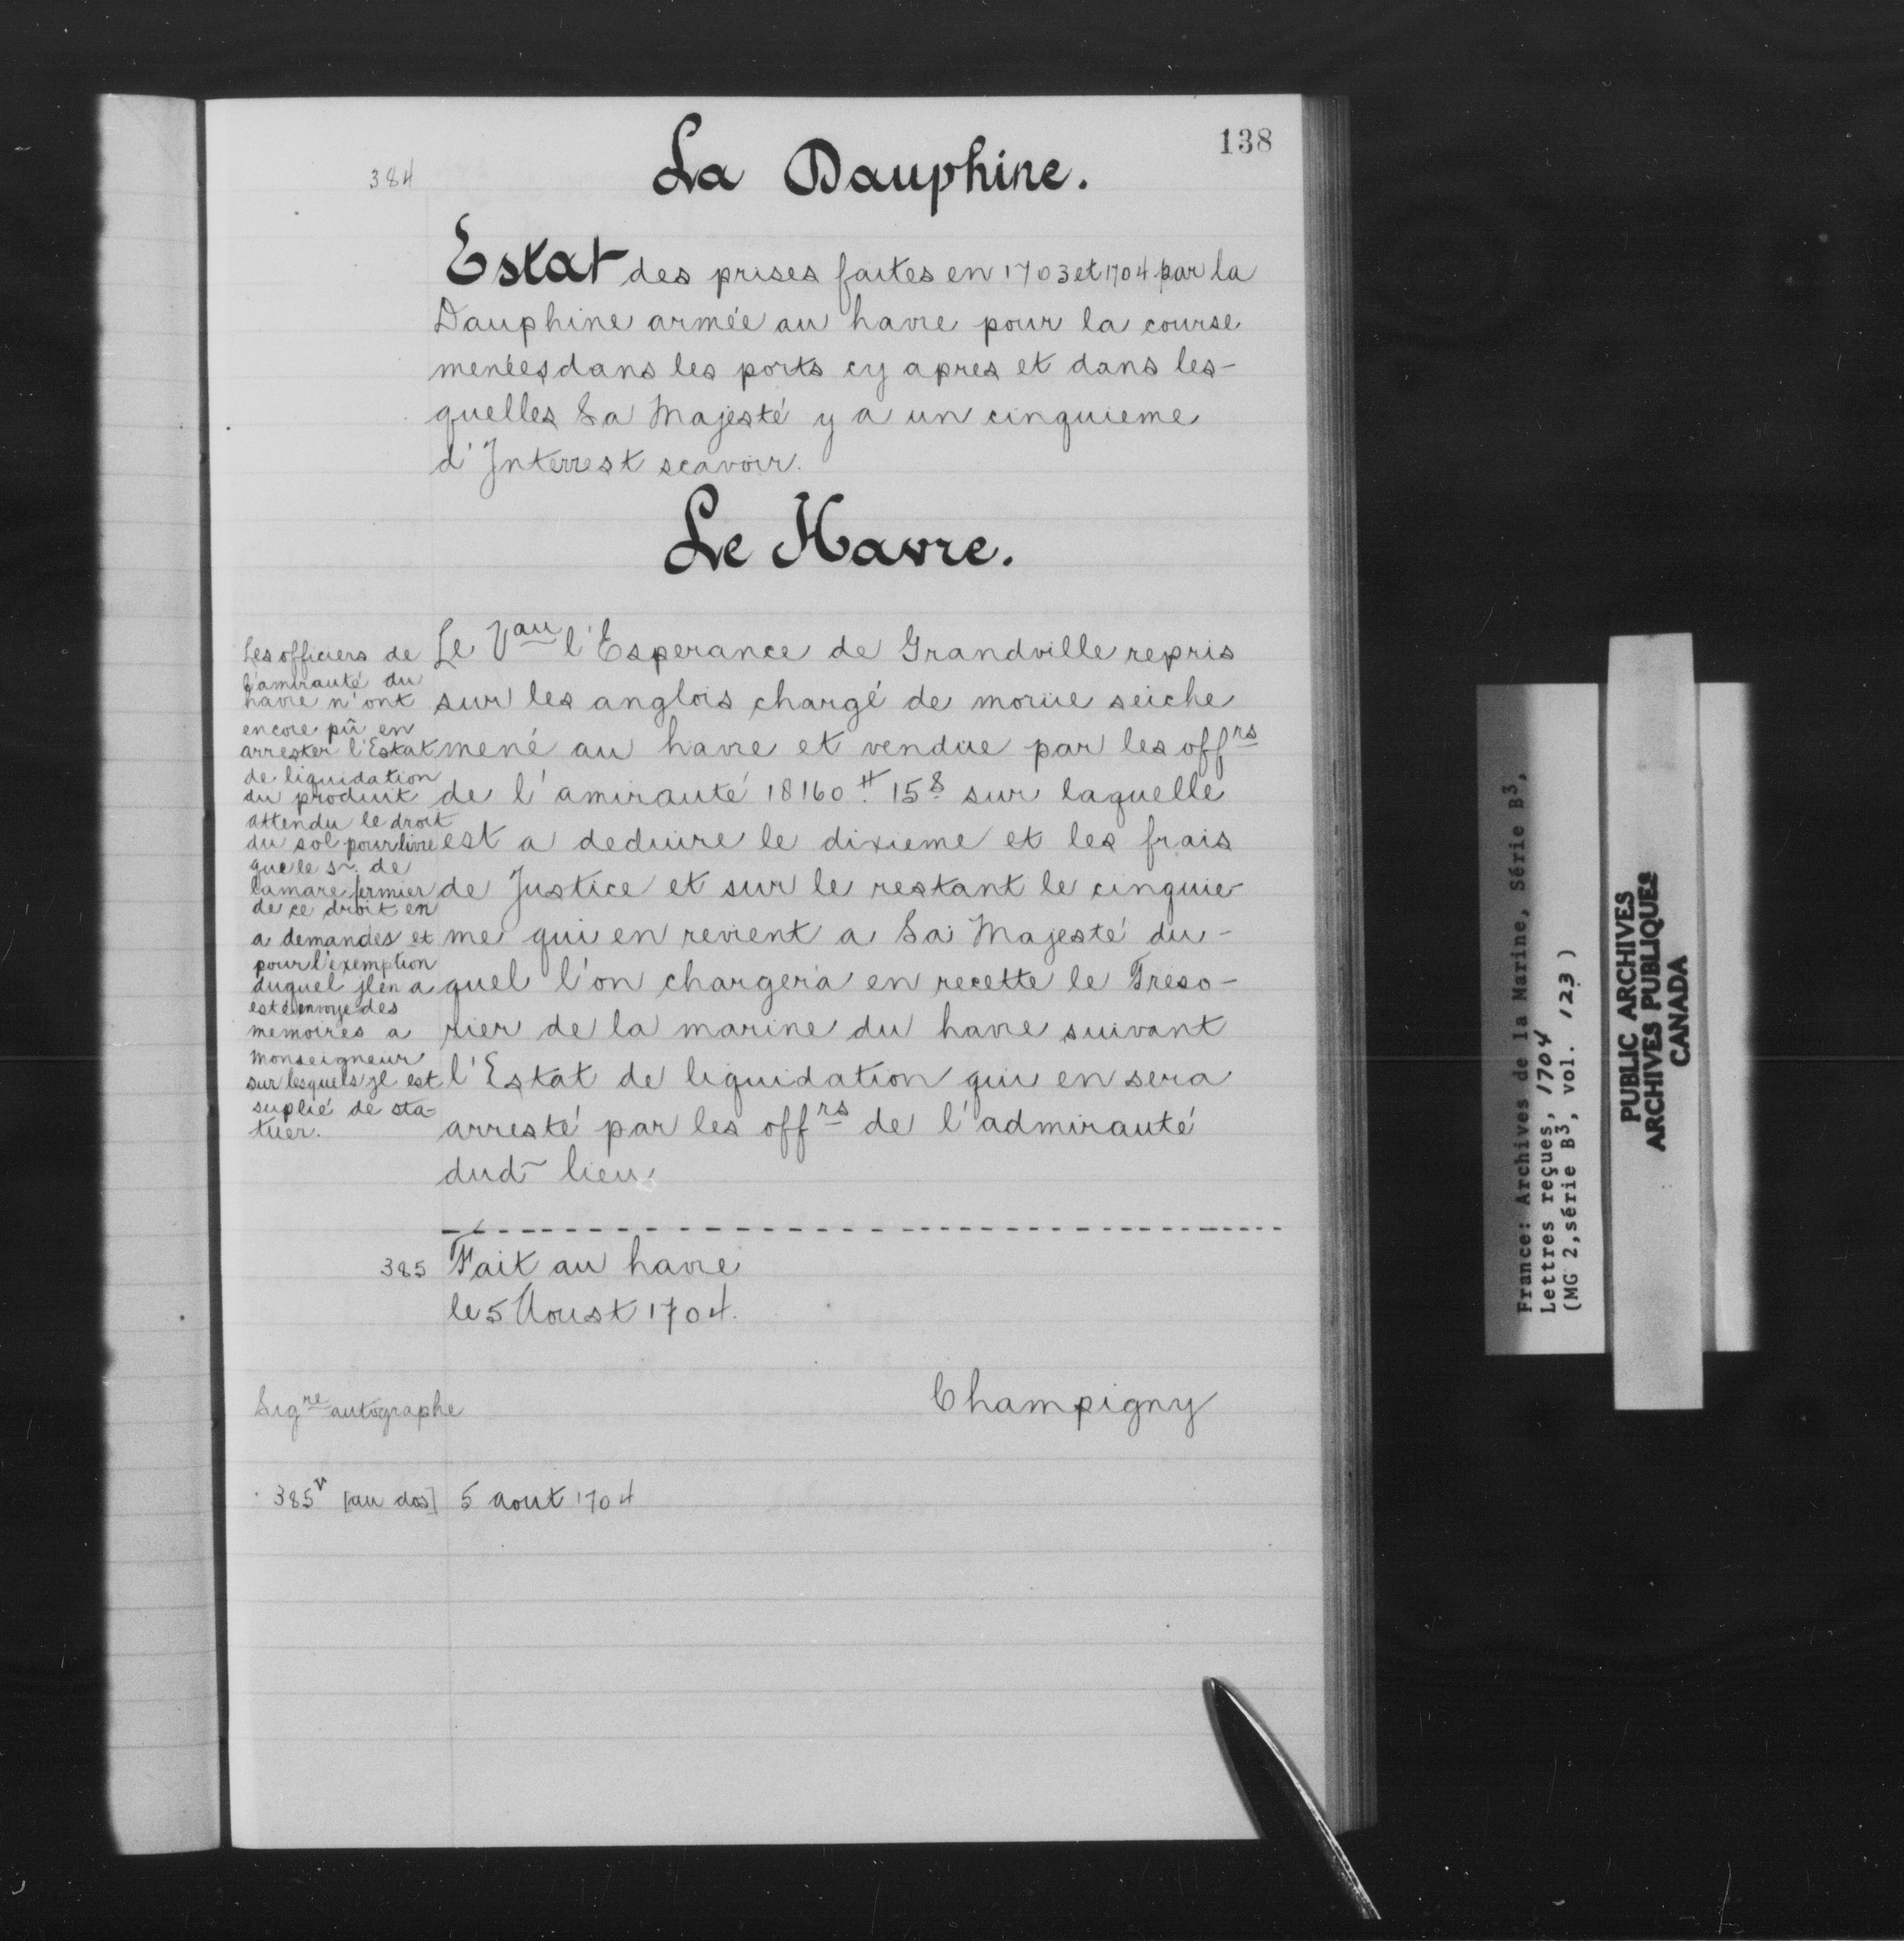 138
384
La Dauphine.
Estat des prises faites en 1703 et 1704 par la
Dauphine armée au havre pour la course
menées dans les ports cy apres et dans les-
quelles Sa Majesté y a un cinquieme
d'Interrest scavoir.
Le Havre.
Le Vau l'Esperance de Grandville repris
sur les anglois chargé de morüe seiche
mené au havre et vendüe par les offrs
de l'amirauté 18160 # 15 s sur laquelle
est a deduire le dixieme et les frais
de Justice et sur le restant le cinquie-
me qui en revient a Sa Majesté du-
quel l'on chargera en recette le Treso-
rier de la marine du havre suivant
l'Estat de liquidation qui en sera
arresté par les offrs de l'admirauté
dud~ lieu.
Les officiers de
l'amirauté du
havre n'ont
encore pû en
arrester l'Estat
de liquidation
du produit
attendu le droit
du sol pour livre
que le sr. de
lamare fermier
de ce droit en
a demandes et
pour l'exemption
duquel jl en a
esté envoye des
memoires a
monseigneur
sur lesquels jl est
suplié de sta-
tuer.
385 Fait au havre
le 5 Aoust 1704.
Champigny
Sigre autographe
385v [au dos] 5 aout 1704
France: Archives de la Marine, Série B3,
Lettres reçues, 1704
(MG 2, série B3, vol. 123)
PUBLIC ARCHIVES
ARCHIVES PUBLIQUES
CANADA